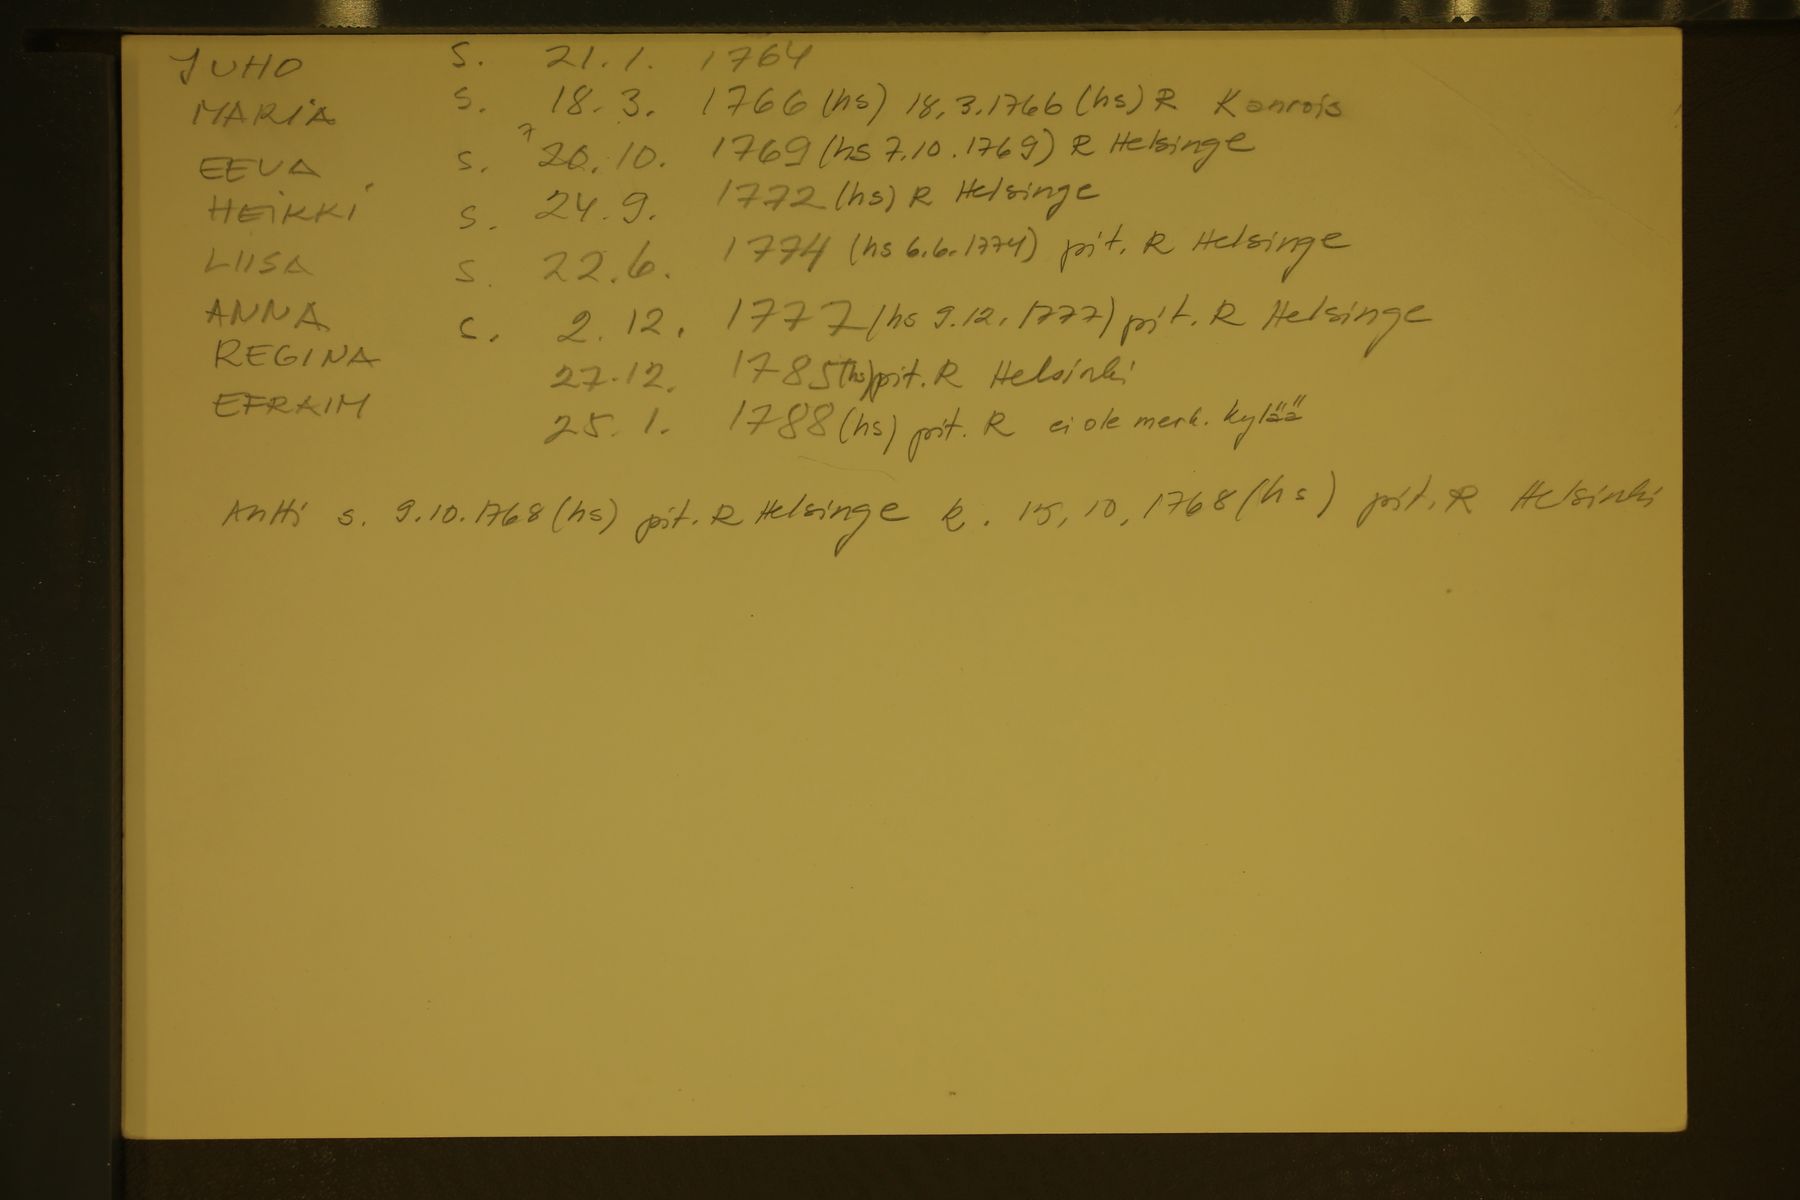 JUHO s. 21.1. 1764
MARIA s. 18.3. 1766 (hs) 18.3.1766 (hs) R Kanrois
7
EEVA s. 20.10. 1769 (hs 7.10.1769) R Helsinge
HEIKKI s. 24.9. 1772 (hs) R Helsinge
LIISA s. 22.6. 1774 (hs 6.6.1774) pit. R Helsinge
ANNA s. 2.12. 1777 (hs 9.12.1777) pit. R Helsinge
REGINA 27.12. 1785 (hs) pit. R Helsinki
EFRAIM 25.1. 1788 (hs) pit. R ei ole merk. kylää
Antti s. 9.10.1768 (hs) pit. R Helsinge k. 15.10.1768 (hs) pit. R Helsinki